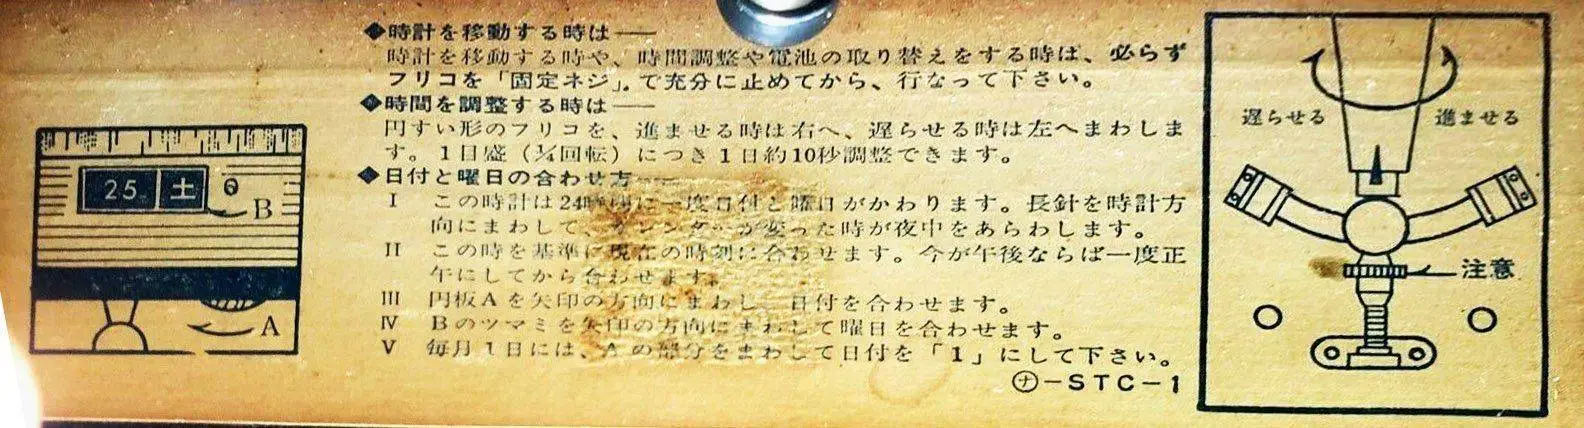 ◆時計を移動する時は——
時計を移動する時や、時間調整や電池の取り替えをする時は、必らず
フリコを「固定ネジ」で充分に止めてから、行なって下さい。
◆時間を調整する時は——
円すい形のフリコを、進ませる時は右へ、遅らせる時は左へまわしま
す。1目盛（¼回転）につき1日約10秒調整できます。
◆日付と曜日の合わせ方——
I この時計は24時間に一度日付と曜日がかわります。長針を時計方
向にまわして、カレンダーが変った時が夜中をあらわします。
II この時を基準に現在の時刻に合わせます。今が午後ならば一度正
午にしてから合わせます。
III 円板Aを矢印の方向にまわし 日付を合わせます。
IV Bのツマミを矢印の方向にまわして曜日を合わせます。
V 毎月1日には、Aの部分をまわして日付を「1」にして下さい。
㋤-STC-1
25 土
B
A
遅らせる 進ませる
注意